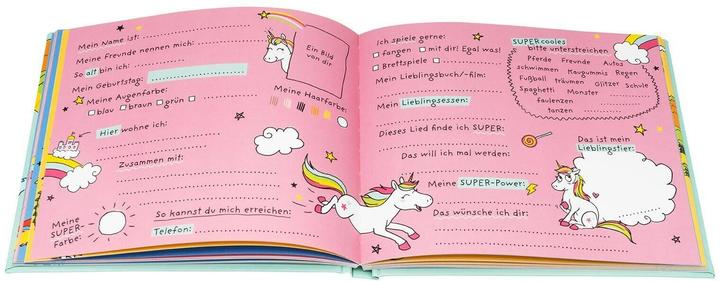 Mein Name ist:
Meine Freunde nennen mich:
So alt bin ich:
Mein Geburtstag:
Meine Augenfarbe:
blau braun grün
Hier wohne ich:
Zusammen mit:
Meine
SUPER-
Farbe:
So kannst du mich erreichen:
Telefon:
Ein Bild
von dir
Meine Haarfarbe:
Ich spiele gerne:
fangen mit dir! Egal was!
Brettspiele
Mein Lieblingsbuch/-film:
Mein Lieblingsessen:
Dieses Lied finde ich SUPER:
Das will ich mal werden:
Meine SUPER-Power:
Das wünsche ich dir:
SUPERcooles
bitte unterstreichen
Pferde Freunde Autos
schwimmen Kaugummis Regen
Fußball träumen Glitzer Schule
Spaghetti Monster
faulenzen
tanzen
Das ist mein
Lieblingstier: